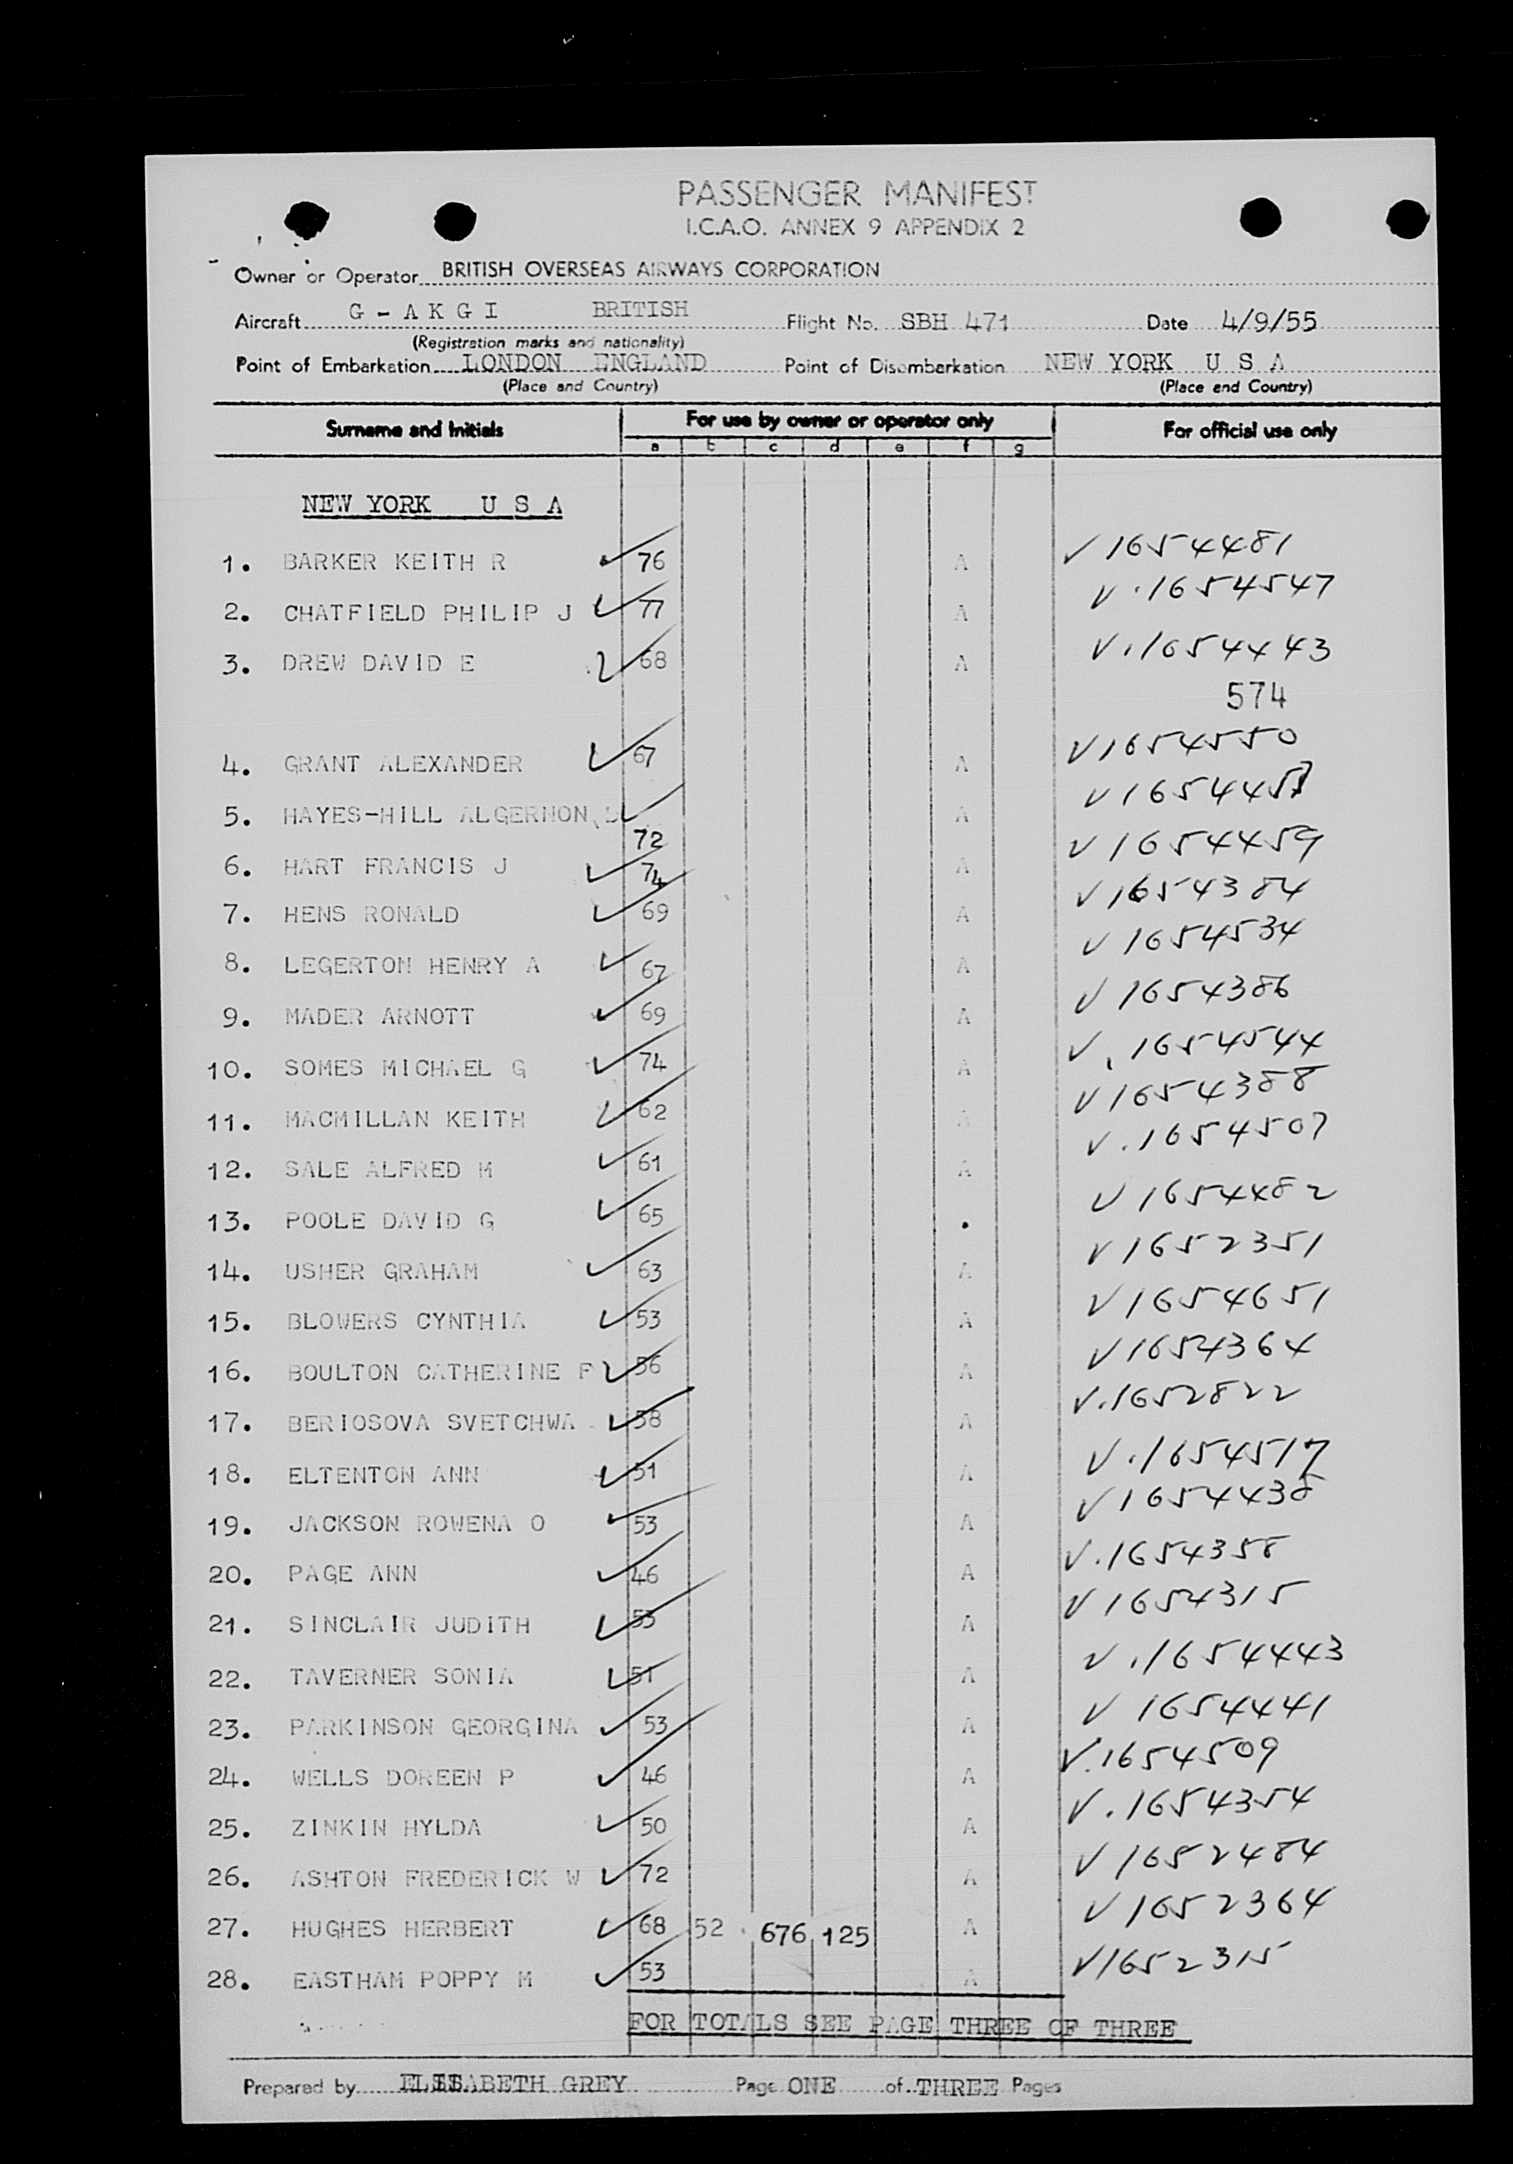 PASSENGER MANIFEST
I.C.A.O. ANNEX 9 APPENDIX 2
Owner or Operator BRITISH OVERSEAS AIRWAYS CORPORATION
Aircraft G - A K G I BRITISH Flight No. SBH 471 Date 4/9/55
(Registration marks and nationality)
Point of Embarkation LONDON ENGLAND Point of Disembarkation NEW YORK U S A
(Place and Country) (Place and Country)
Surname and Initials For use by owner or operator only For official use only
a b c d e f g
NEW YORK U S A
1. BARKER KEITH R 76 A V 1654481
2. CHATFIELD PHILIP J 77 A V.1654547
3. DREW DAVID E 68 A V.1654443
574
4. GRANT ALEXANDER 67 A V1654550
5. HAYES-HILL ALGERNON 72 A
6. HART FRANCIS J 74 A V 1654459
7. HENS RONALD 69 A V 1654384
8. LEGERTON HENRY A 67 A V 1654534
9. MADER ARNOTT 69 A V 1654386
10. SOMES MICHAEL G 74 A V. 1654544
11. MACMILLAN KEITH 62 A V1654388
12. SALE ALFRED M 61 A V.1654507
13. POOLE DAVID G 65 . V 1654482
14. USHER GRAHAM 63 A V1652351
15. BLOWERS CYNTHIA 53 A V1654651
16. BOULTON CATHERINE F 56 A V1654364
17. BERIOSOVA SVETCHWA 58 A V.1652822
18. ELTENTON ANN 51 A V.1654517
19. JACKSON ROWENA O 53 A V1654438
20. PAGE ANN 46 A V.1654358
21. SINCLAIR JUDITH 53 A V1654315
22. TAVERNER SONIA 51 A V.1654443
23. PARKINSON GEORGINA 53 A V 1654441
24. WELLS DOREEN P 46 A V.1654509
25. ZINKIN HYLDA 50 A V.1654354
26. ASHTON FREDERICK W 72 A V 1652484
27. HUGHES HERBERT 68 52 676 125 A V 1652364
28. EASTHAM POPPY M 53 A V1652315
FOR TOTALS SEE PAGE THREE OF THREE
Prepared by GREY Page ONE of THREE Pages